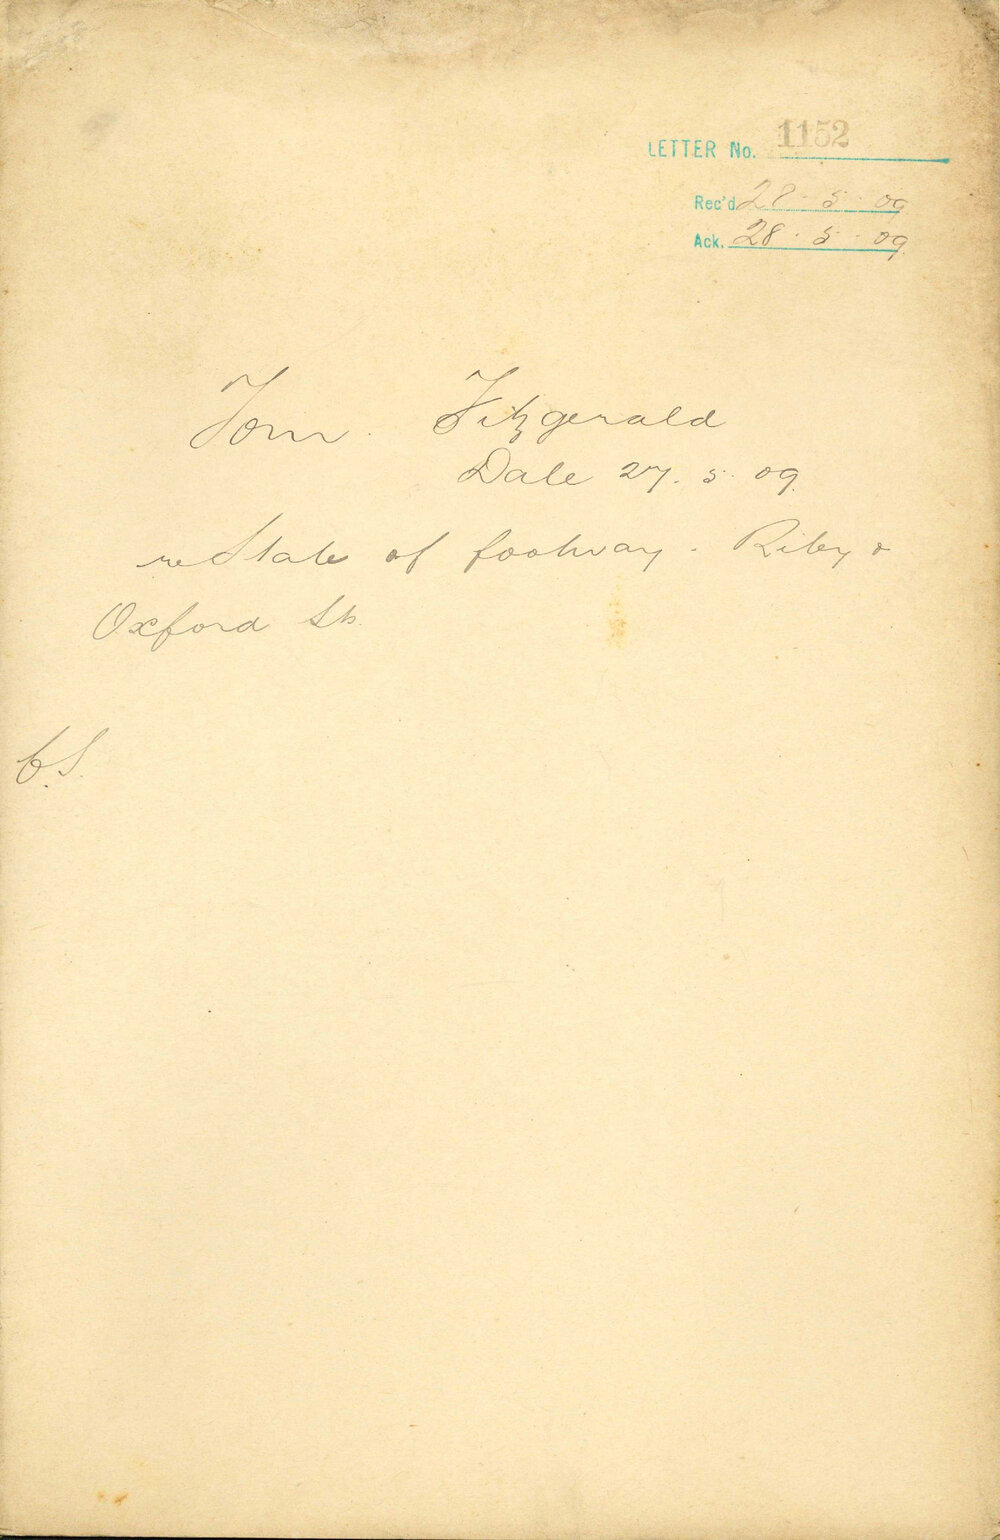 LETTER No. 1152
Rec'd 28 · 5 · 09
Ack. 28 · 5 · 09
Tom. Fitzgerald
Date 27. 5. 09.
re State of footway. Riley &
Oxford Sts.
C.S.